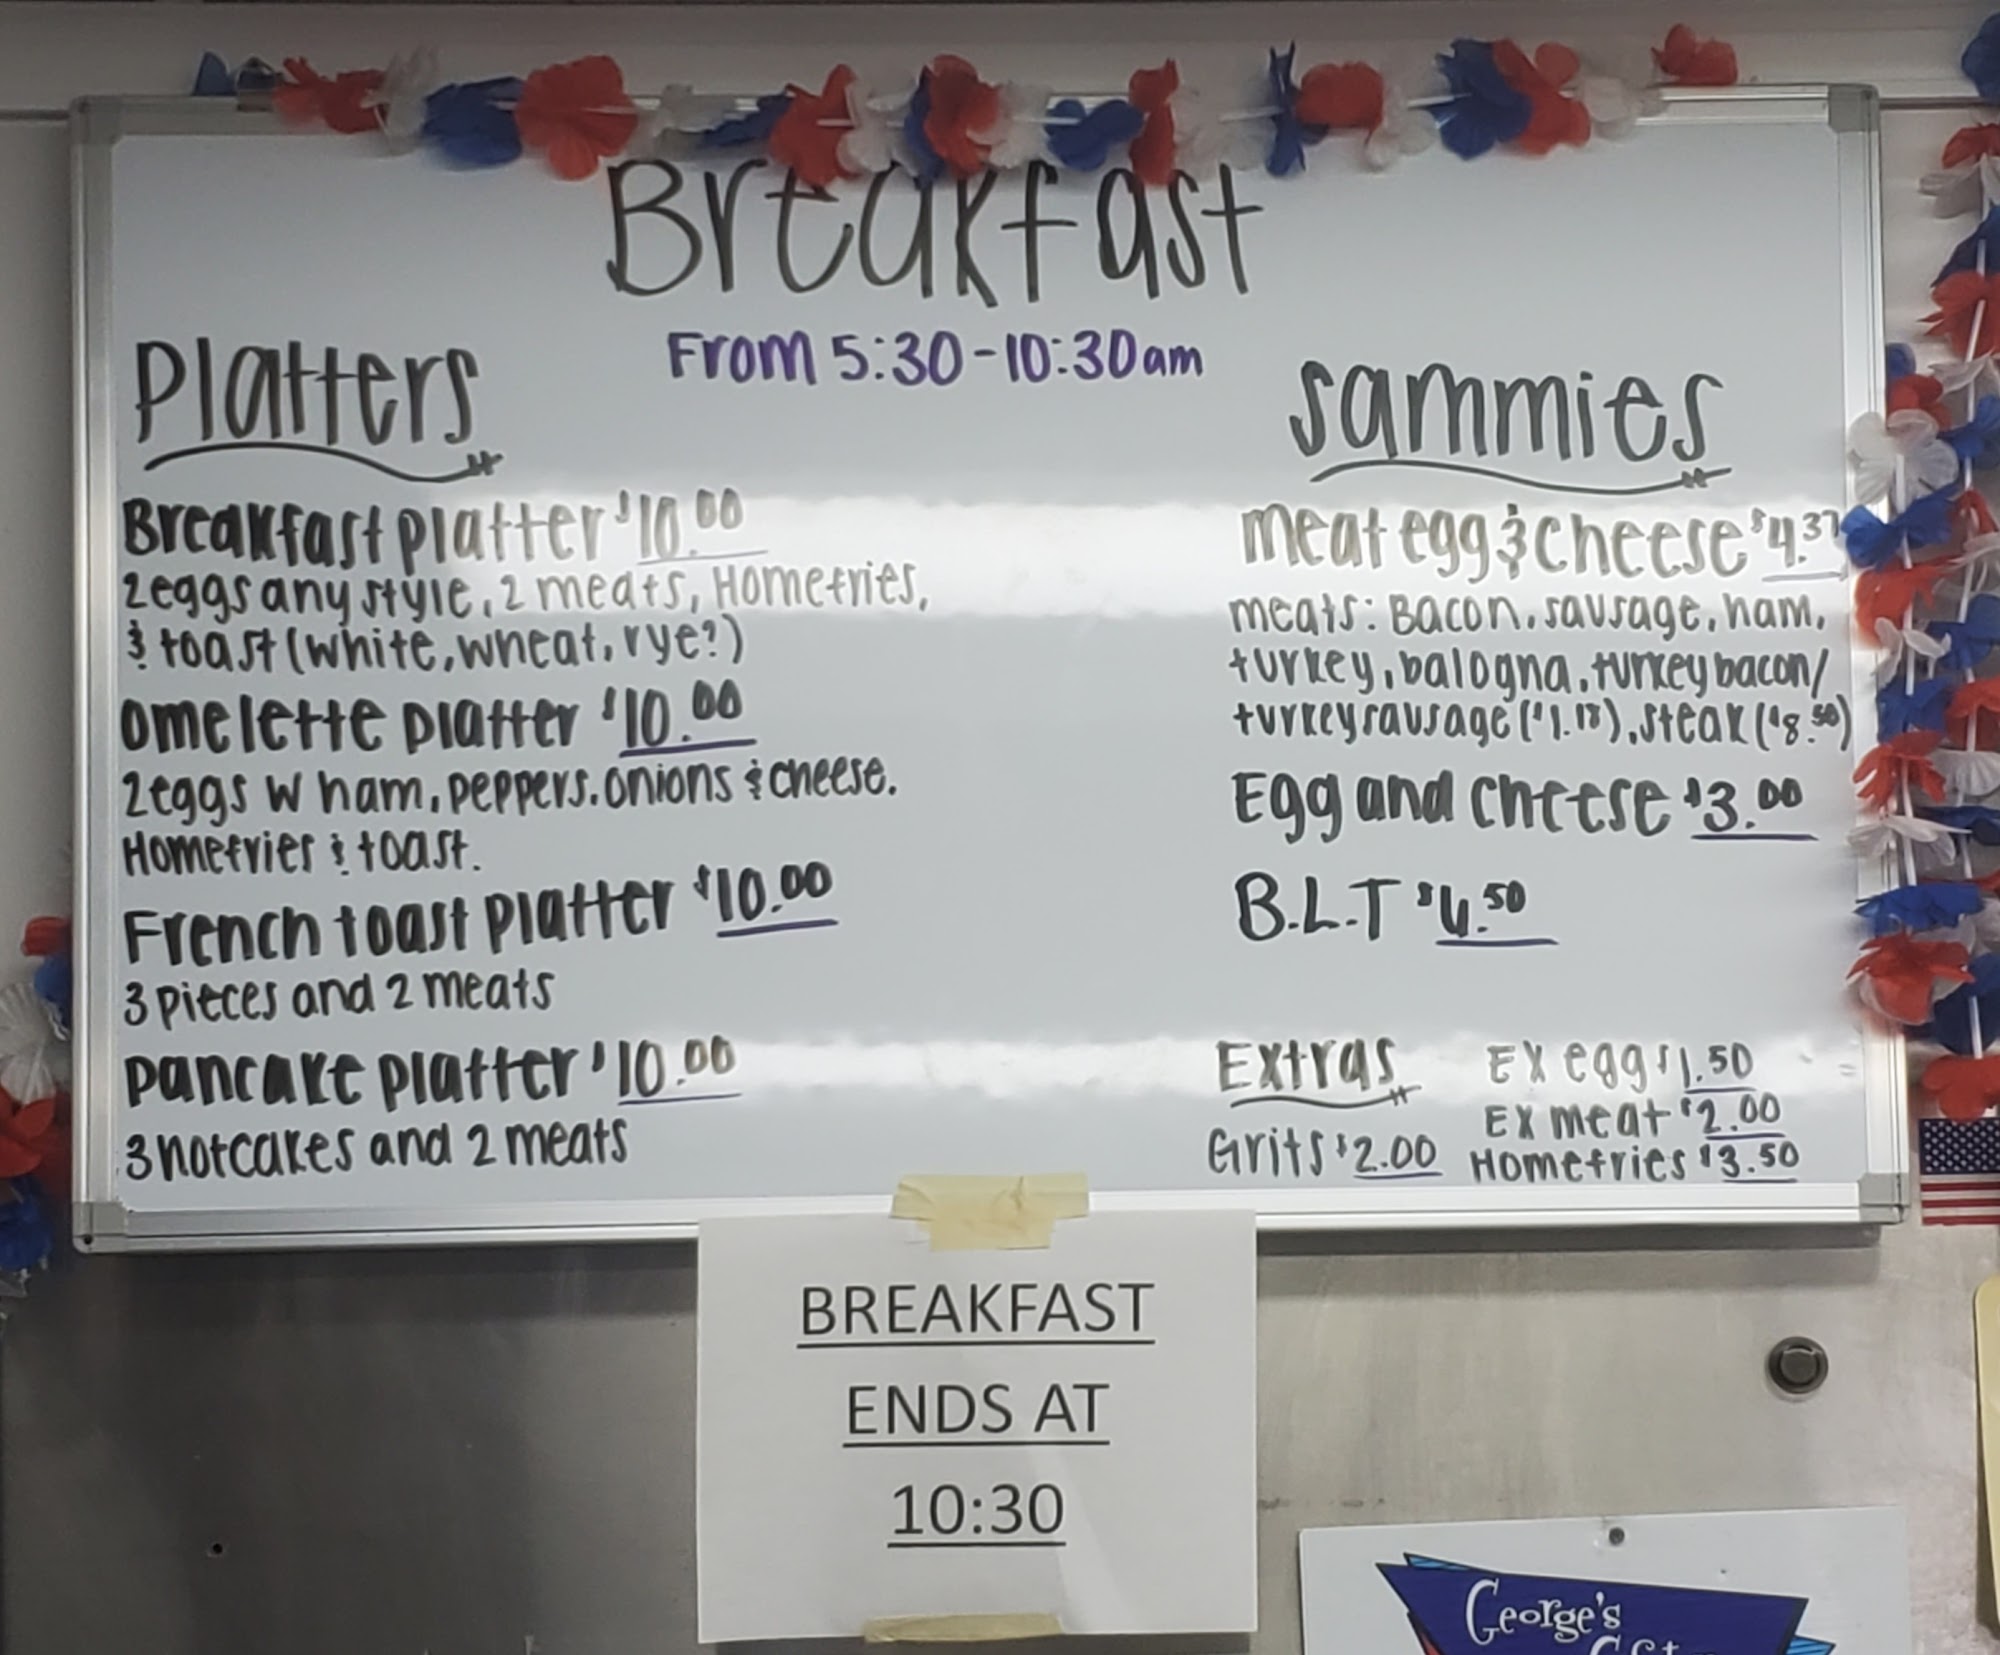 Breakfast
From 5:30-10:30am
Platters
Breakfast platter $10.00
2 eggs any style, 2 meats, Homefries,
& toast (white, wheat, rye?)
omelette platter $10.00
2 eggs w ham, peppers, onions & cheese.
Homefries & toast.
French toast platter $10.00
3 pieces and 2 meats
pancake platter $10.00
3 hotcakes and 2 meats
sammies
meat egg & cheese $4.37
meats: Bacon, sausage, ham,
turkey, balogna, turkey bacon/
turkey sausage ($1.18), steak ($8.50)
Egg and cheese $3.00
B.L.T $4.50
Extras
Grits $2.00
Ex egg $1.50
Ex meat $2.00
Homefries $3.50
BREAKFAST
ENDS AT
10:30
George's